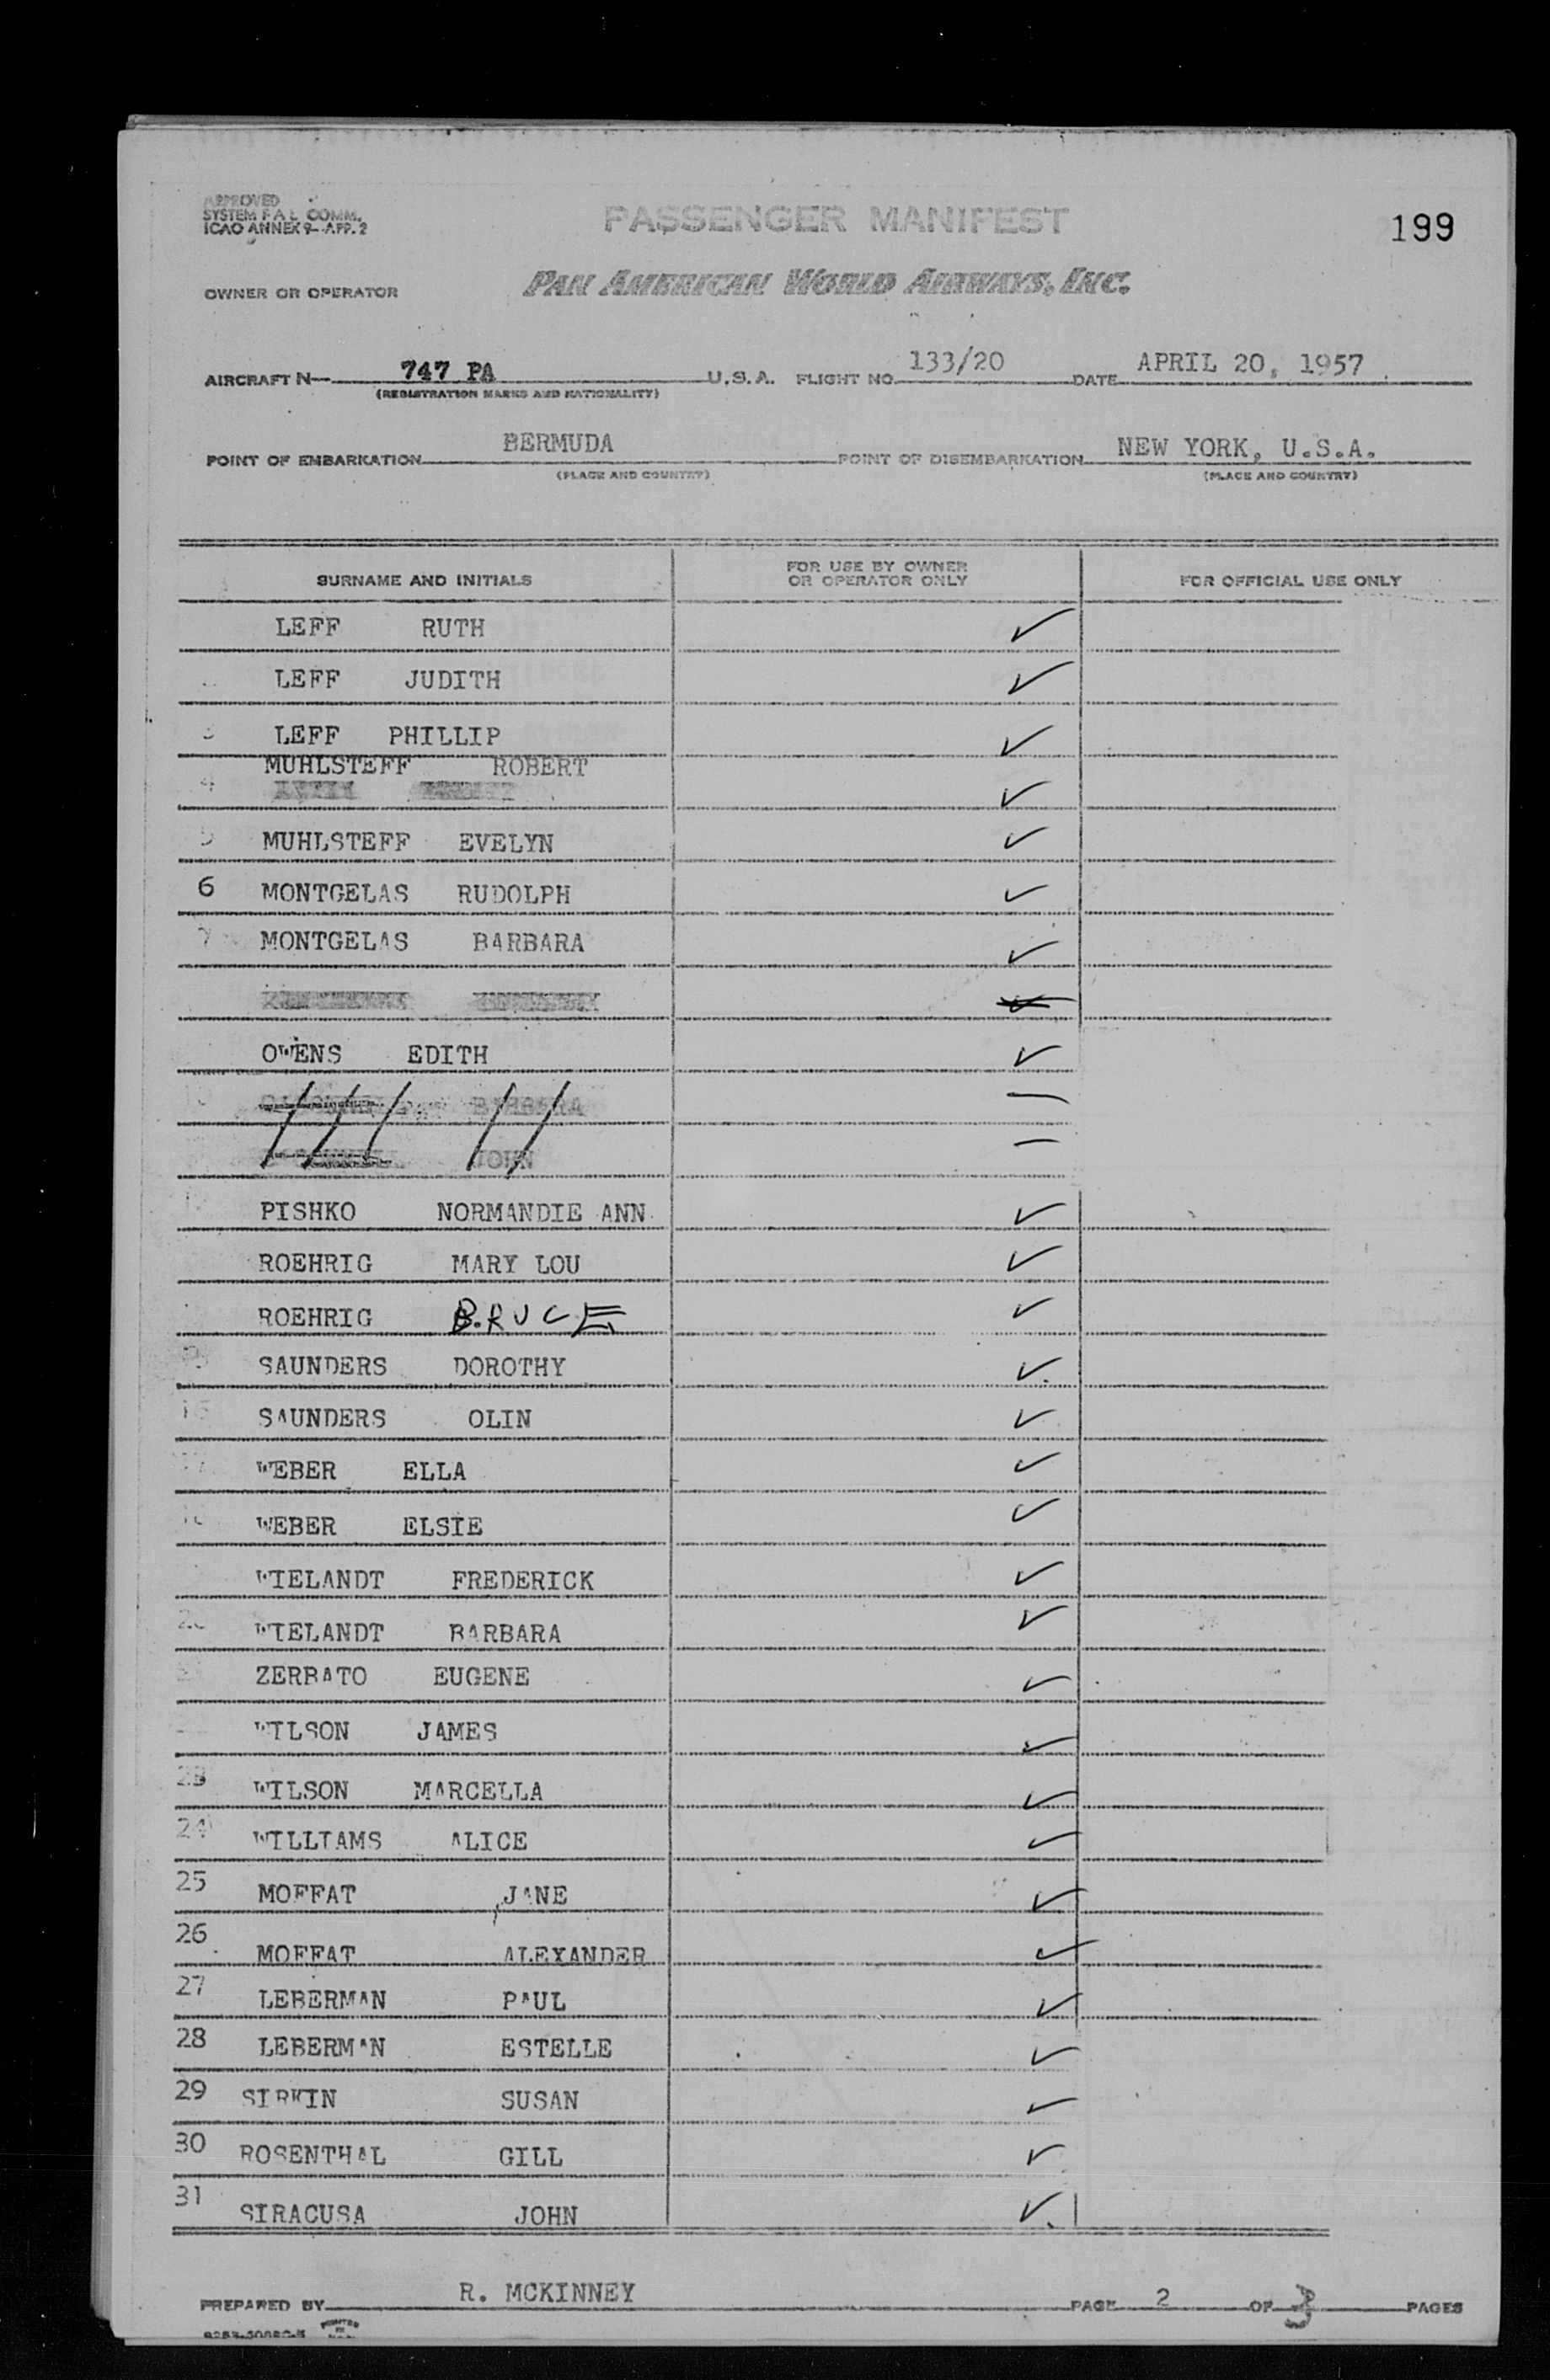 APPROVED
SYSTEM F A L COMM.
ICAO ANNEX 9- APP. 2
PASSENGER MANIFEST
199
OWNER OR OPERATOR
PAN AMERICAN WORLD AIRWAYS, INC.
AIRCRAFT N 747 PA U.S.A. FLIGHT NO. 133/20 DATE APRIL 20, 1957
(REGISTRATION MARKS AND NATIONALITY)
POINT OF EMBARKATION BERMUDA POINT OF DISEMBARKATION NEW YORK, U.S.A.
(PLACE AND COUNTRY) (PLACE AND COUNTRY)
SURNAME AND INITIALS FOR USE BY OWNER OR OPERATOR ONLY FOR OFFICIAL USE ONLY
LEFF RUTH ✓
LEFF JUDITH ✓
3 LEFF PHILLIP ✓
MUHLSTEFF ROBERT
4 ✓
5 MUHLSTEFF EVELYN ✓
6 MONTGELAS RUDOLPH ✓
7 MONTGELAS BARBARA ✓
OWENS EDITH ✓
BARBARA —
JOHN —
PISHKO NORMANDIE ANN ✓
ROEHRIG MARY LOU ✓
ROEHRIG BRUCE ✓
SAUNDERS DOROTHY ✓
SAUNDERS OLIN ✓
WEBER ELLA ✓
WEBER ELSIE ✓
WIELANDT FREDERICK ✓
20 WIELANDT BARBARA ✓
ZERBATO EUGENE ✓
WILSON JAMES ✓
23 WILSON MARCELLA ✓
24 WILLIAMS ALICE ✓
25 MOFFAT JANE ✓
26 MOFFAT ALEXANDER ✓
27 LEBERMAN PAUL ✓
28 LEBERMAN ESTELLE ✓
29 SIRKIN SUSAN ✓
30 ROSENTHAL GILL ✓
31 SIRACUSA JOHN ✓
PREPARED BY R. MCKINNEY PAGE 2 OF 3 PAGES